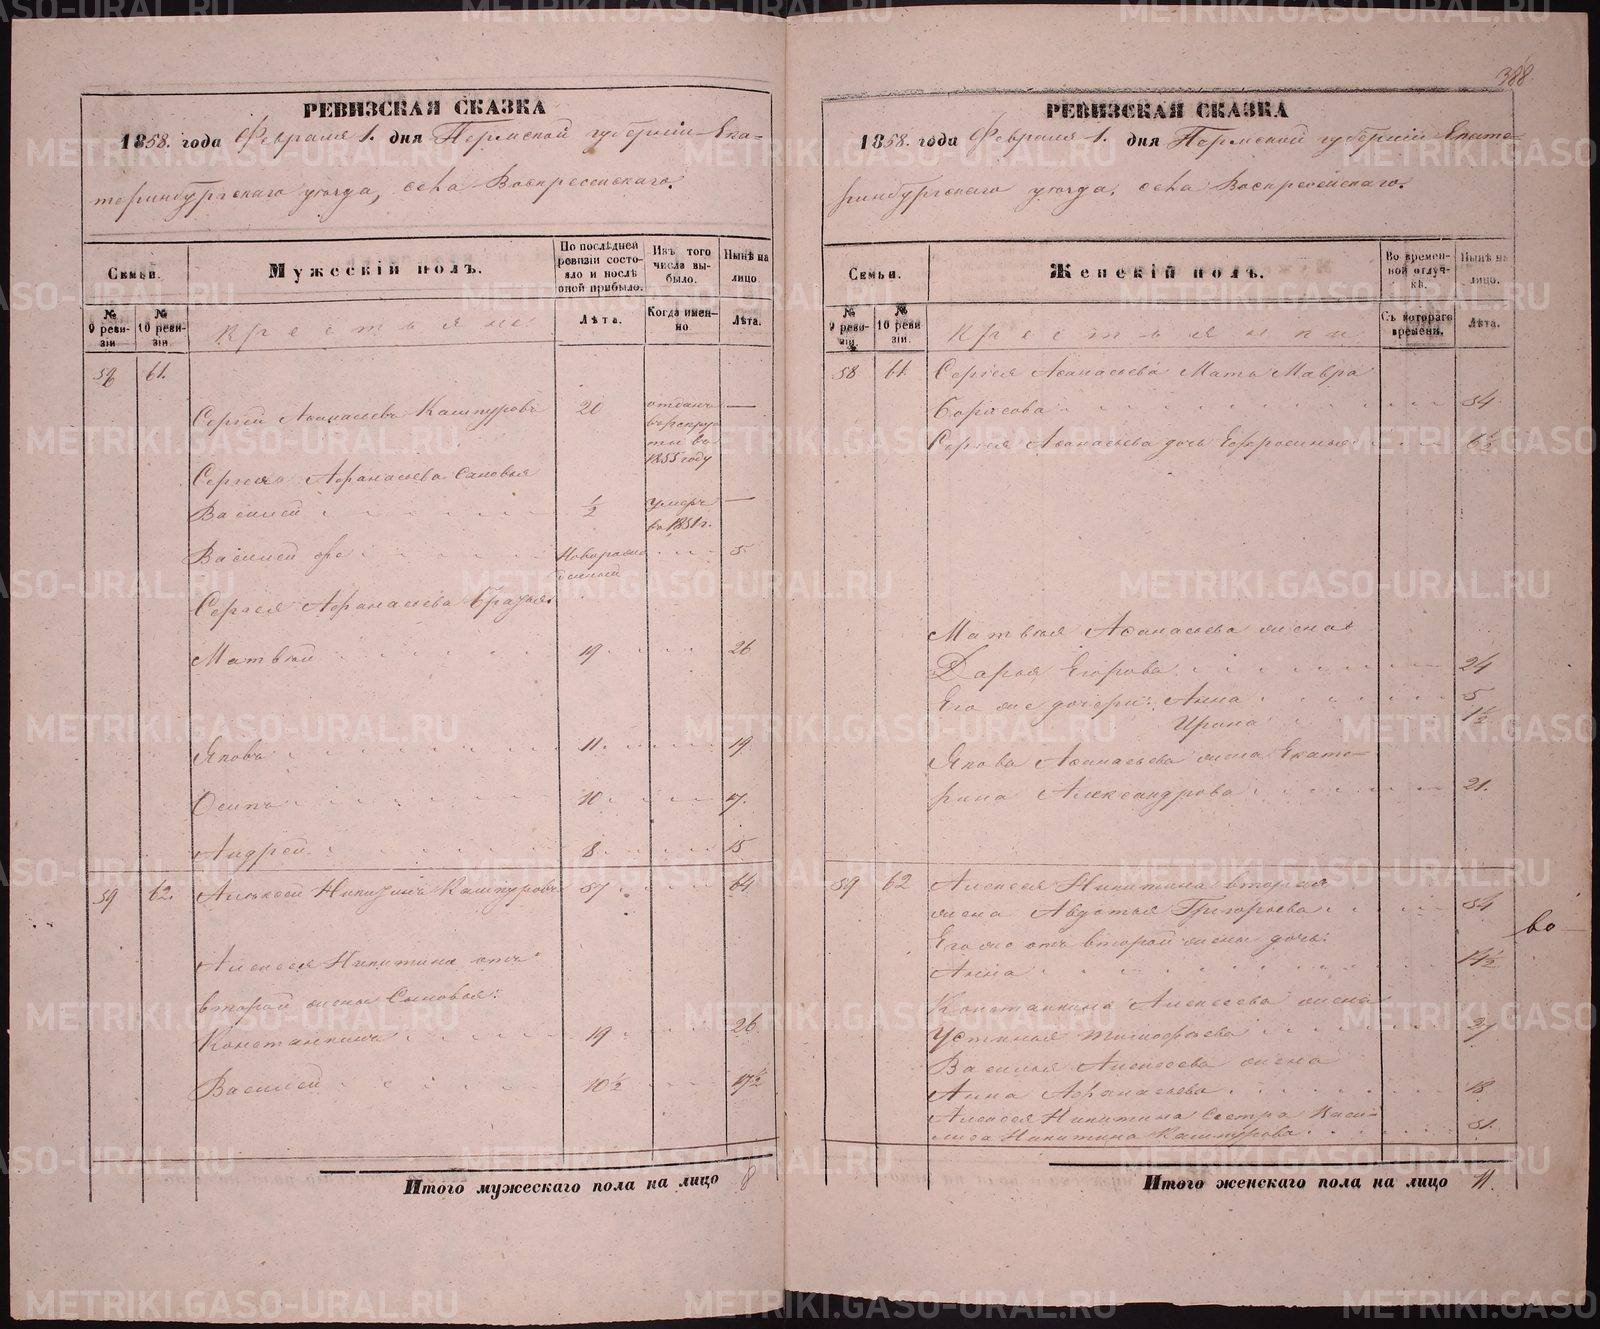 388.
РЕВИЗСКАЯ СКАЗКА
1858. года Февраля 1. дня Пермской губерніи Ека-
теринбургскаго уѣзда, села Воскресенскаго.
Семьи.
Мужескій полъ.
По послѣдней ревизіи состояло и послѣ оной прибыло.
Изъ того числа выбыло.
Нынѣ на лицо.
№ 9 ревизіи
№ 10 ревизіи
Крестьяне
Лѣта.
Когда именно
Лѣта.
58 61.
Сергей Афанасьевъ Кашпуровъ 20 отданъ въ рекруты въ 1855 году —
Сергея Афанасьева Сыновья
Василей ½ умеръ въ 1851 г. —
Василей же Новорожденный 5
Сергея Афанасьева братья:
Матвей 19 26
Яковъ 11 19
Осипъ 10 17.
Андрей 8 15
59 62. Алексей Никитинъ Кашпуровъ 57 64
Алексея Никитина отъ
второй жены Сыновья:
Константинъ 19 26
Василей 10½ 17½
Итого мужескаго пола на лицо 8
РЕВИЗСКАЯ СКАЗКА
1858. года Февраля 1. дня Пермской губерніи Екате-
ринбургскаго уѣзда, села Воскресенскаго.
Семьи.
Женскій полъ.
Во временной отлучкѣ.
Нынѣ на лицо.
№ 9 ревизіи.
№ 10 ревизіи.
Крестьянки
Съ котораго времени.
Лѣта.
58 61. Сергея Афанасьева Мать Мавра
Борисова 54
Сергея Афанасьева дочь Ефросинья 6½
Матвея Афанасьева жена
Дарья Егорова 24
Его же дочери: Анна 5
Ирина 1½
Якова Афанасьева жена Екате-
рина Александрова 21.
59 62 Алексея Никитина вторая
жена Авдотья Григорьева 54
Его же отъ второй жены дочь:
Анна 14½
Константина Алексеева жена
Устинья Тимофеева 27
Василья Алексеева жена
Анна Афанасьева 18
Алексея Никитина Сестра Васи-
лиса Никитина Кашпурова 51.
Итого женскаго пола на лицо 11.
во —
METRIKI.GASO-URAL.RU